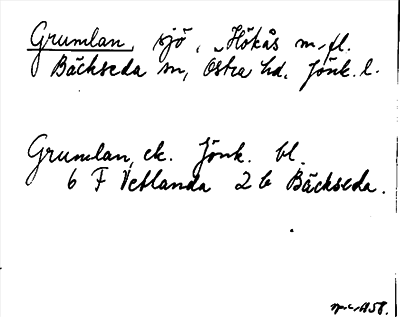 Grumlan, sjö, Hökås m. fl.
Bäckseda sn, Östra hd. Jönk. l.
Grumlan, ek. Jönk. bl.
6 F Vetlanda 2 b Bäckseda.